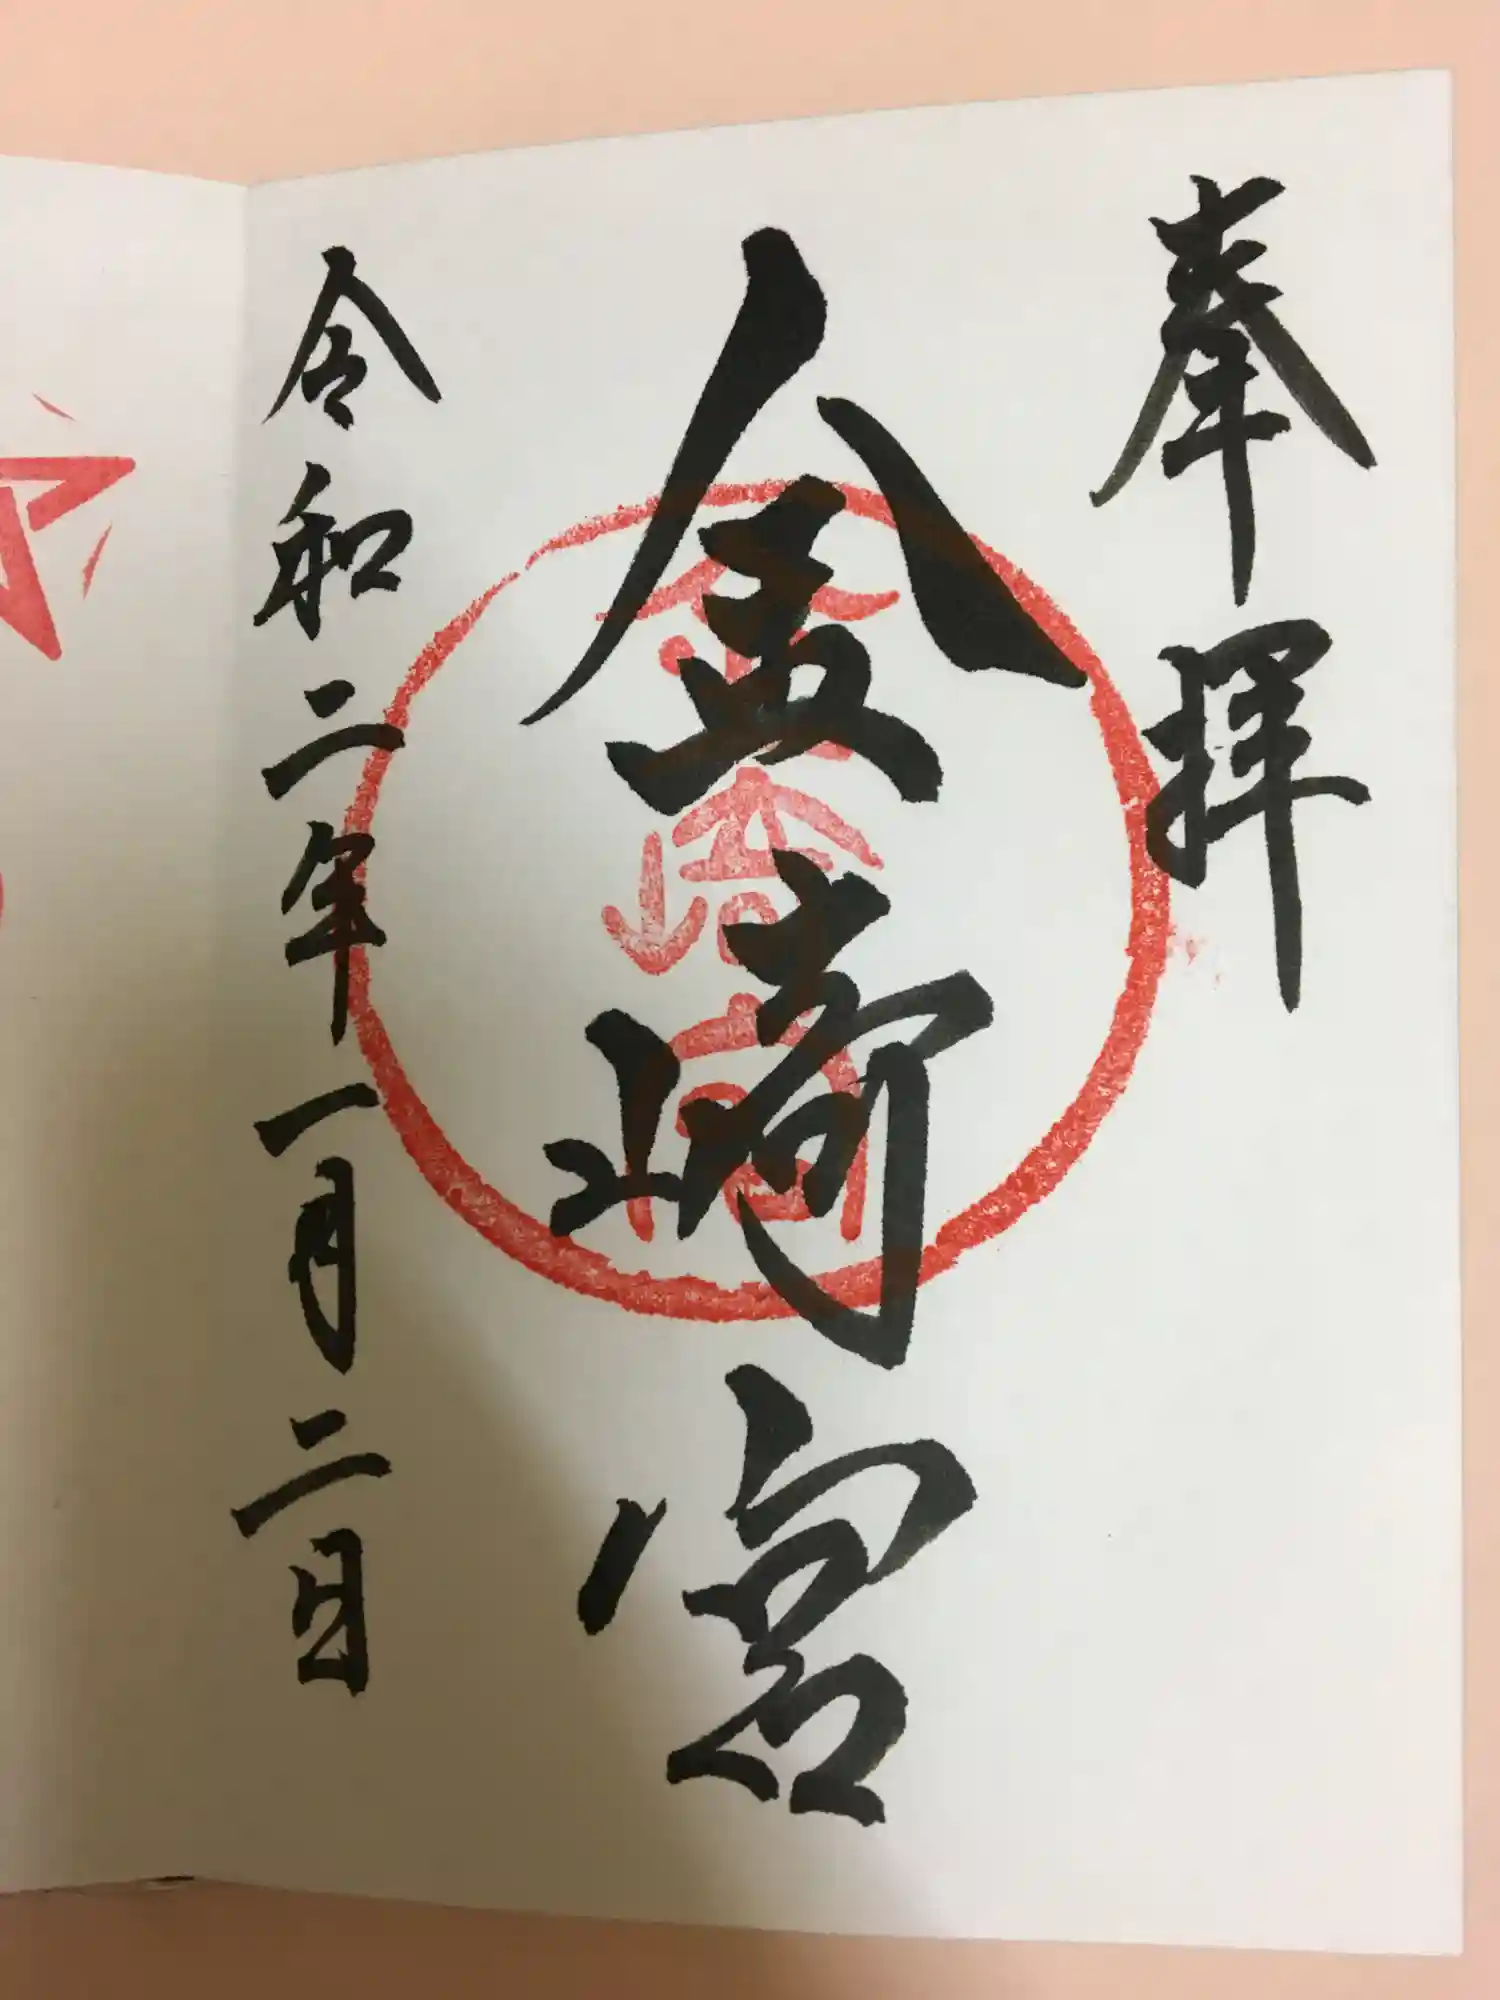 奉拝
金崎宮
金崎宮
令和二年一月二日